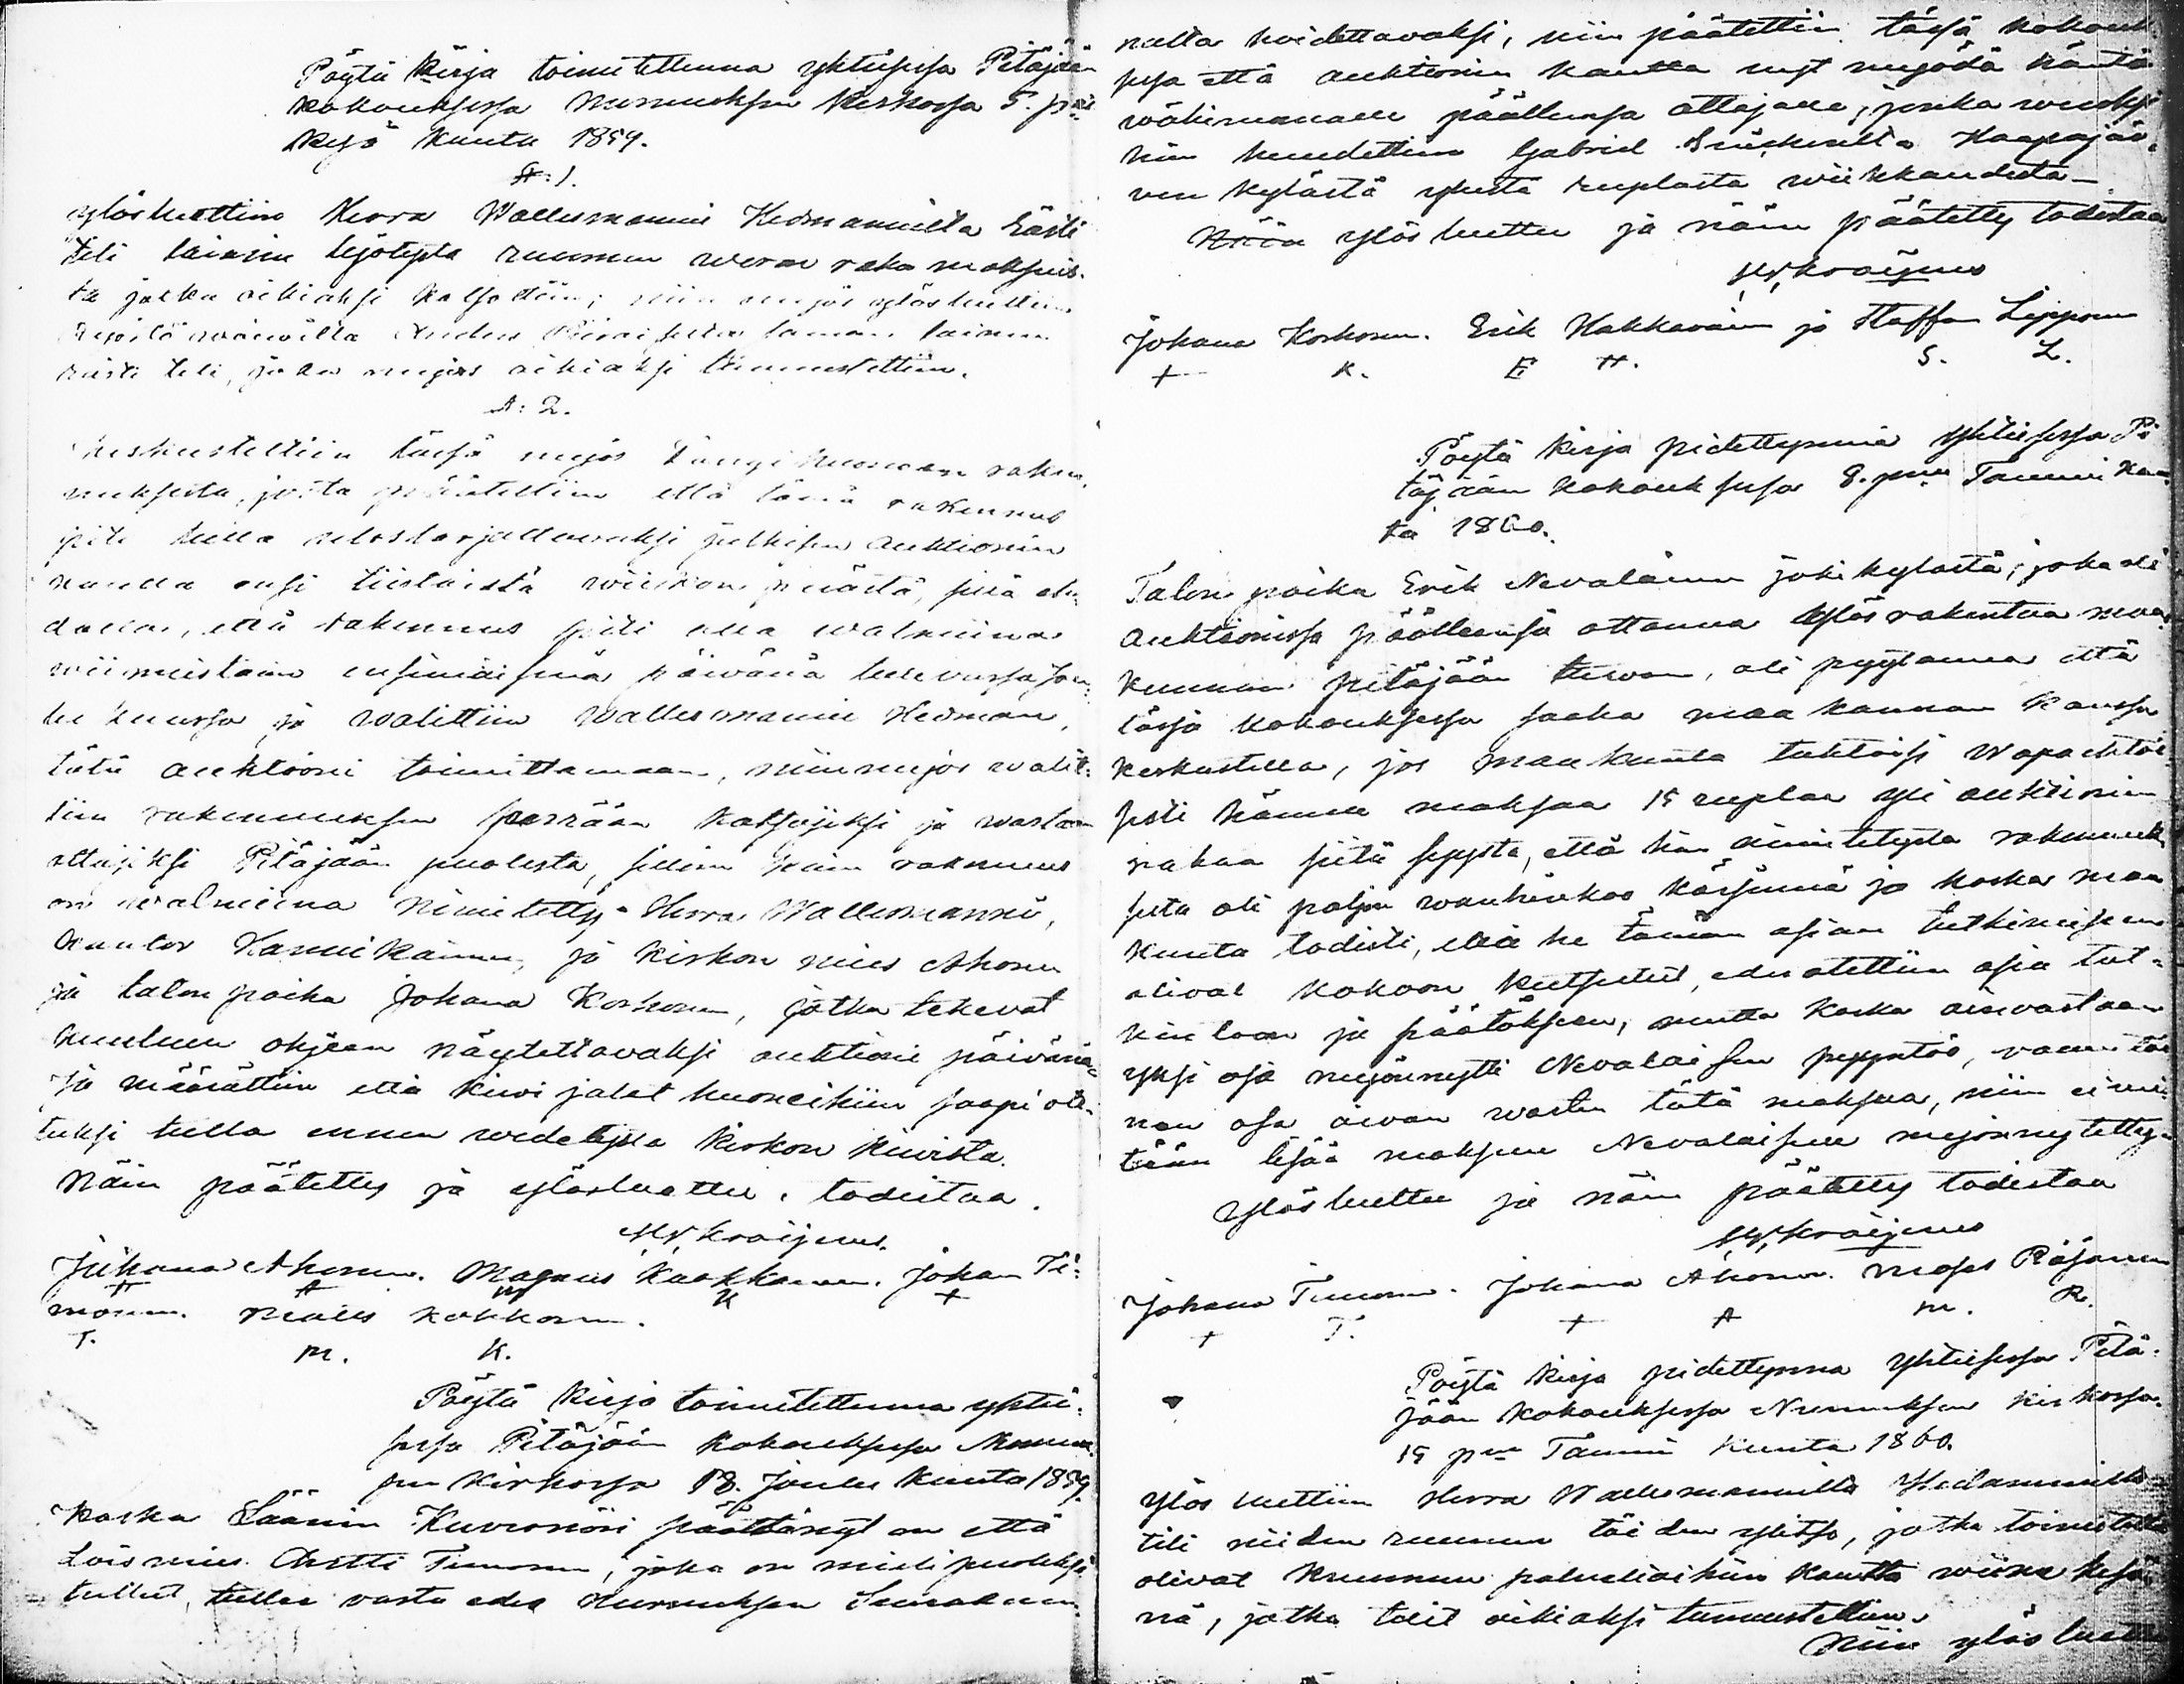 Pöytä kirja toimitettuna yhteisessä Pitäjään
kokouksessa Nurmeksen kirkossa 5. p:nä
kesä kuuta 1859.
A: 1.
ylös luettiin Herra Wallesmanni Hedmannilta
tili ruunun weron raha maksuis-
ta jotka oikiaksi katsottiin; niin myös ylös luettiin
tämän
tili, joka myös oikiaksi tunnustettiin.
A: 2.
Keskusteltiin tässä myös huoneen raken-
nuksesta, josta päätettiin että tämä rakennus
piti tulla ulostarjottavaksi julkisen auktionin
kautta ensi tiistaista wiikon päästä, sillä eh-
dolla, että rakennus piti olla walmiina
wiimeistään ensimäisenä päivänä tulevassa Jou-
lu kuussa ja walittiin Wallesmanni Hedman,
tätä auktiooni toimittamaan, niin myös walit-
tiin rakennuksen perään katsojiksi ja wastaan
ottajiksi Pitäjään puolesta, silloin kuin rakennus
on walmiina nimitetty Herra Wallesmanni,
kantor Hannikainen, ja kirkon mies Ahonen
ja talon poika Johana Korhonen, jotka tekevät
kuuluun ohjeen näytettäväksi auktioni päivänä
Ja määrättiin että kivi jalat huoneihiin saapi ote-
tuksi tulla ennen wedetyistä kirkon kivistä.
Näin päätetty ja ylösluettu, todistaa
M W Kraijenus.
Juhana Ahonen. Magnus Kaakkanen. Johan Ti-
H A M K +
monen. Matts Kokkonen.
T. M. K.
Pöytä kirja toimitettuna yhtei-
sessä Pitäjään kokouksessa Nurmek-
sen kirkossa 18. Joulu kuuta 1859.
Koska Läänin Kuvernööri päättänyt on että
Loismies Antti Timonen, joka on mieli puoleksi
tullut, tullee vasta edes Nurmeksen Seurakun-
nalta hoidettavaksi, niin päätettiin tässä kokouk-
sessa että auktionin kautta nyt myödä häntä
wähimmälle päällensä ottajalle, jonka wuoksi
hän huudettiin Gabriel Haapajär-
ven kylästä yhestä ruplasta wiikkaudesta—
Näin ylös luettu ja näin päätetty todistaa
M W Kraijenus
Johana Korhonen. Erik Hakkarainen ja Staffan Lipponen
+ K. E H. S. L.
Pöytä kirja pidettynnä yhteisessä Pi-
täjään kokouksessa 8. p:nä Tammi kuu-
ta 1860.
Talon poika Erik Nevalainen jokikylästä, joka oli
Auktionissa päällensä ottanna ylösrakentaa maa-
kunnan pitäjään tuvan, oli pyytännä että
tässä kokouksessa saaha maa kunnan kanssa
keskustella, jos maakunta tahtoisi Wapaehtoi-
sesti hänne maksaa 15 ruplaa yli auktionin
rahaa siitä syystä, että hän nimitetystä rakennuk-
sesta oli paljon wauhinkoo kärsinnä ja koska maa
kunta todisti, että he tämän asian tutkimiseen
olivat kokoon kutsutut, eduotettiin asia tut-
kintoon ja päätökseen, mutta koska ainoastaan
yksi osa myönnytti Nevalaisen pyyntöö,
nen osa aivan wasten tätä maksua, niin ei mi-
tään lisää maksuu Nevalaiselle myönnytetty.
Ylös luettu ja näin päätetty todistaa
M W Kraijenus
Johana Timonen. Johana Ahonen. Moses Räsänen
+ T. + A M. R.
Pöytä kirja pidettynnä yhteisessä Pitä-
jään kokouksessa Nurmeksen kirkossa
15 p:nä Tammi kuuta 1860.
Ylös luettiin Herra Wallesmannilta Hedmannilta
tili niiden ruunun töiden ylitse, jotka toimitetut
olivat kruunun palveliaihin kautta wiime kesä-
nä, jotka tilit oikiaksi tunnustettiin.
Niin ylös luettu